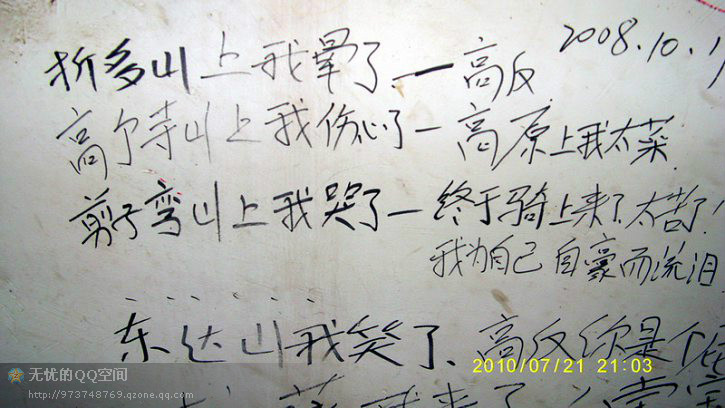 2008.10.1
折多山上我晕了、一高反
高尔寺山上我伤心了一高原上我太菜
剪子弯山上我哭了一终于骑上来了、太苦了!
我为自己自豪而流泪
东达山我笑了、高反你是个
2010/07/21 21:03
无忧的QQ空间
http://973748769.qzone.qq.com